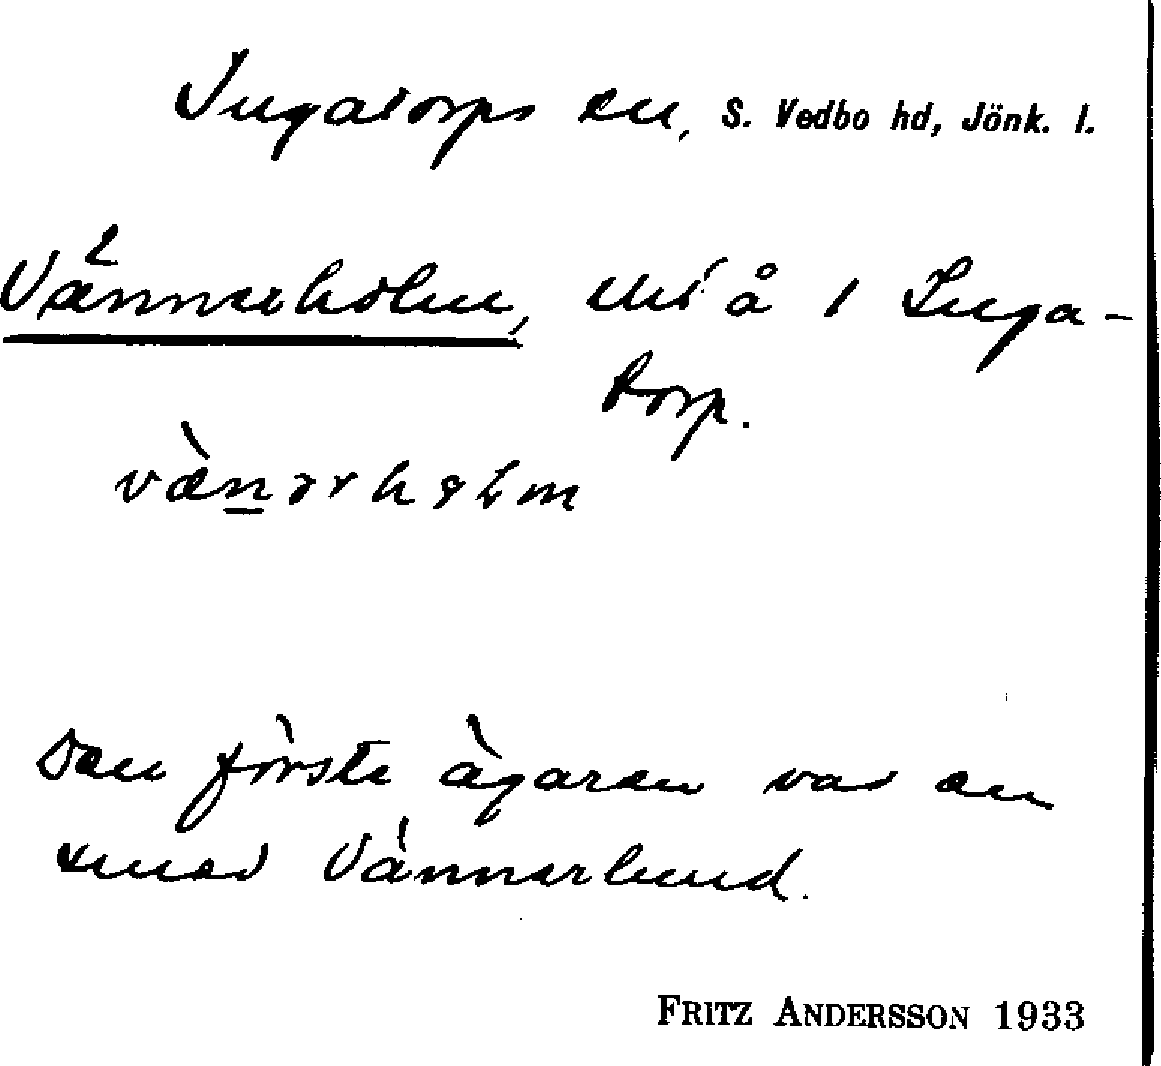 Ingatorps sn, S. Vedbo hd, Jönk. l.
Vännerholm, på 1 Inga-
torp.
vænərholm
Den förste ägaren var en
smed Vännerlund.
FRITZ ANDERSSON 1933